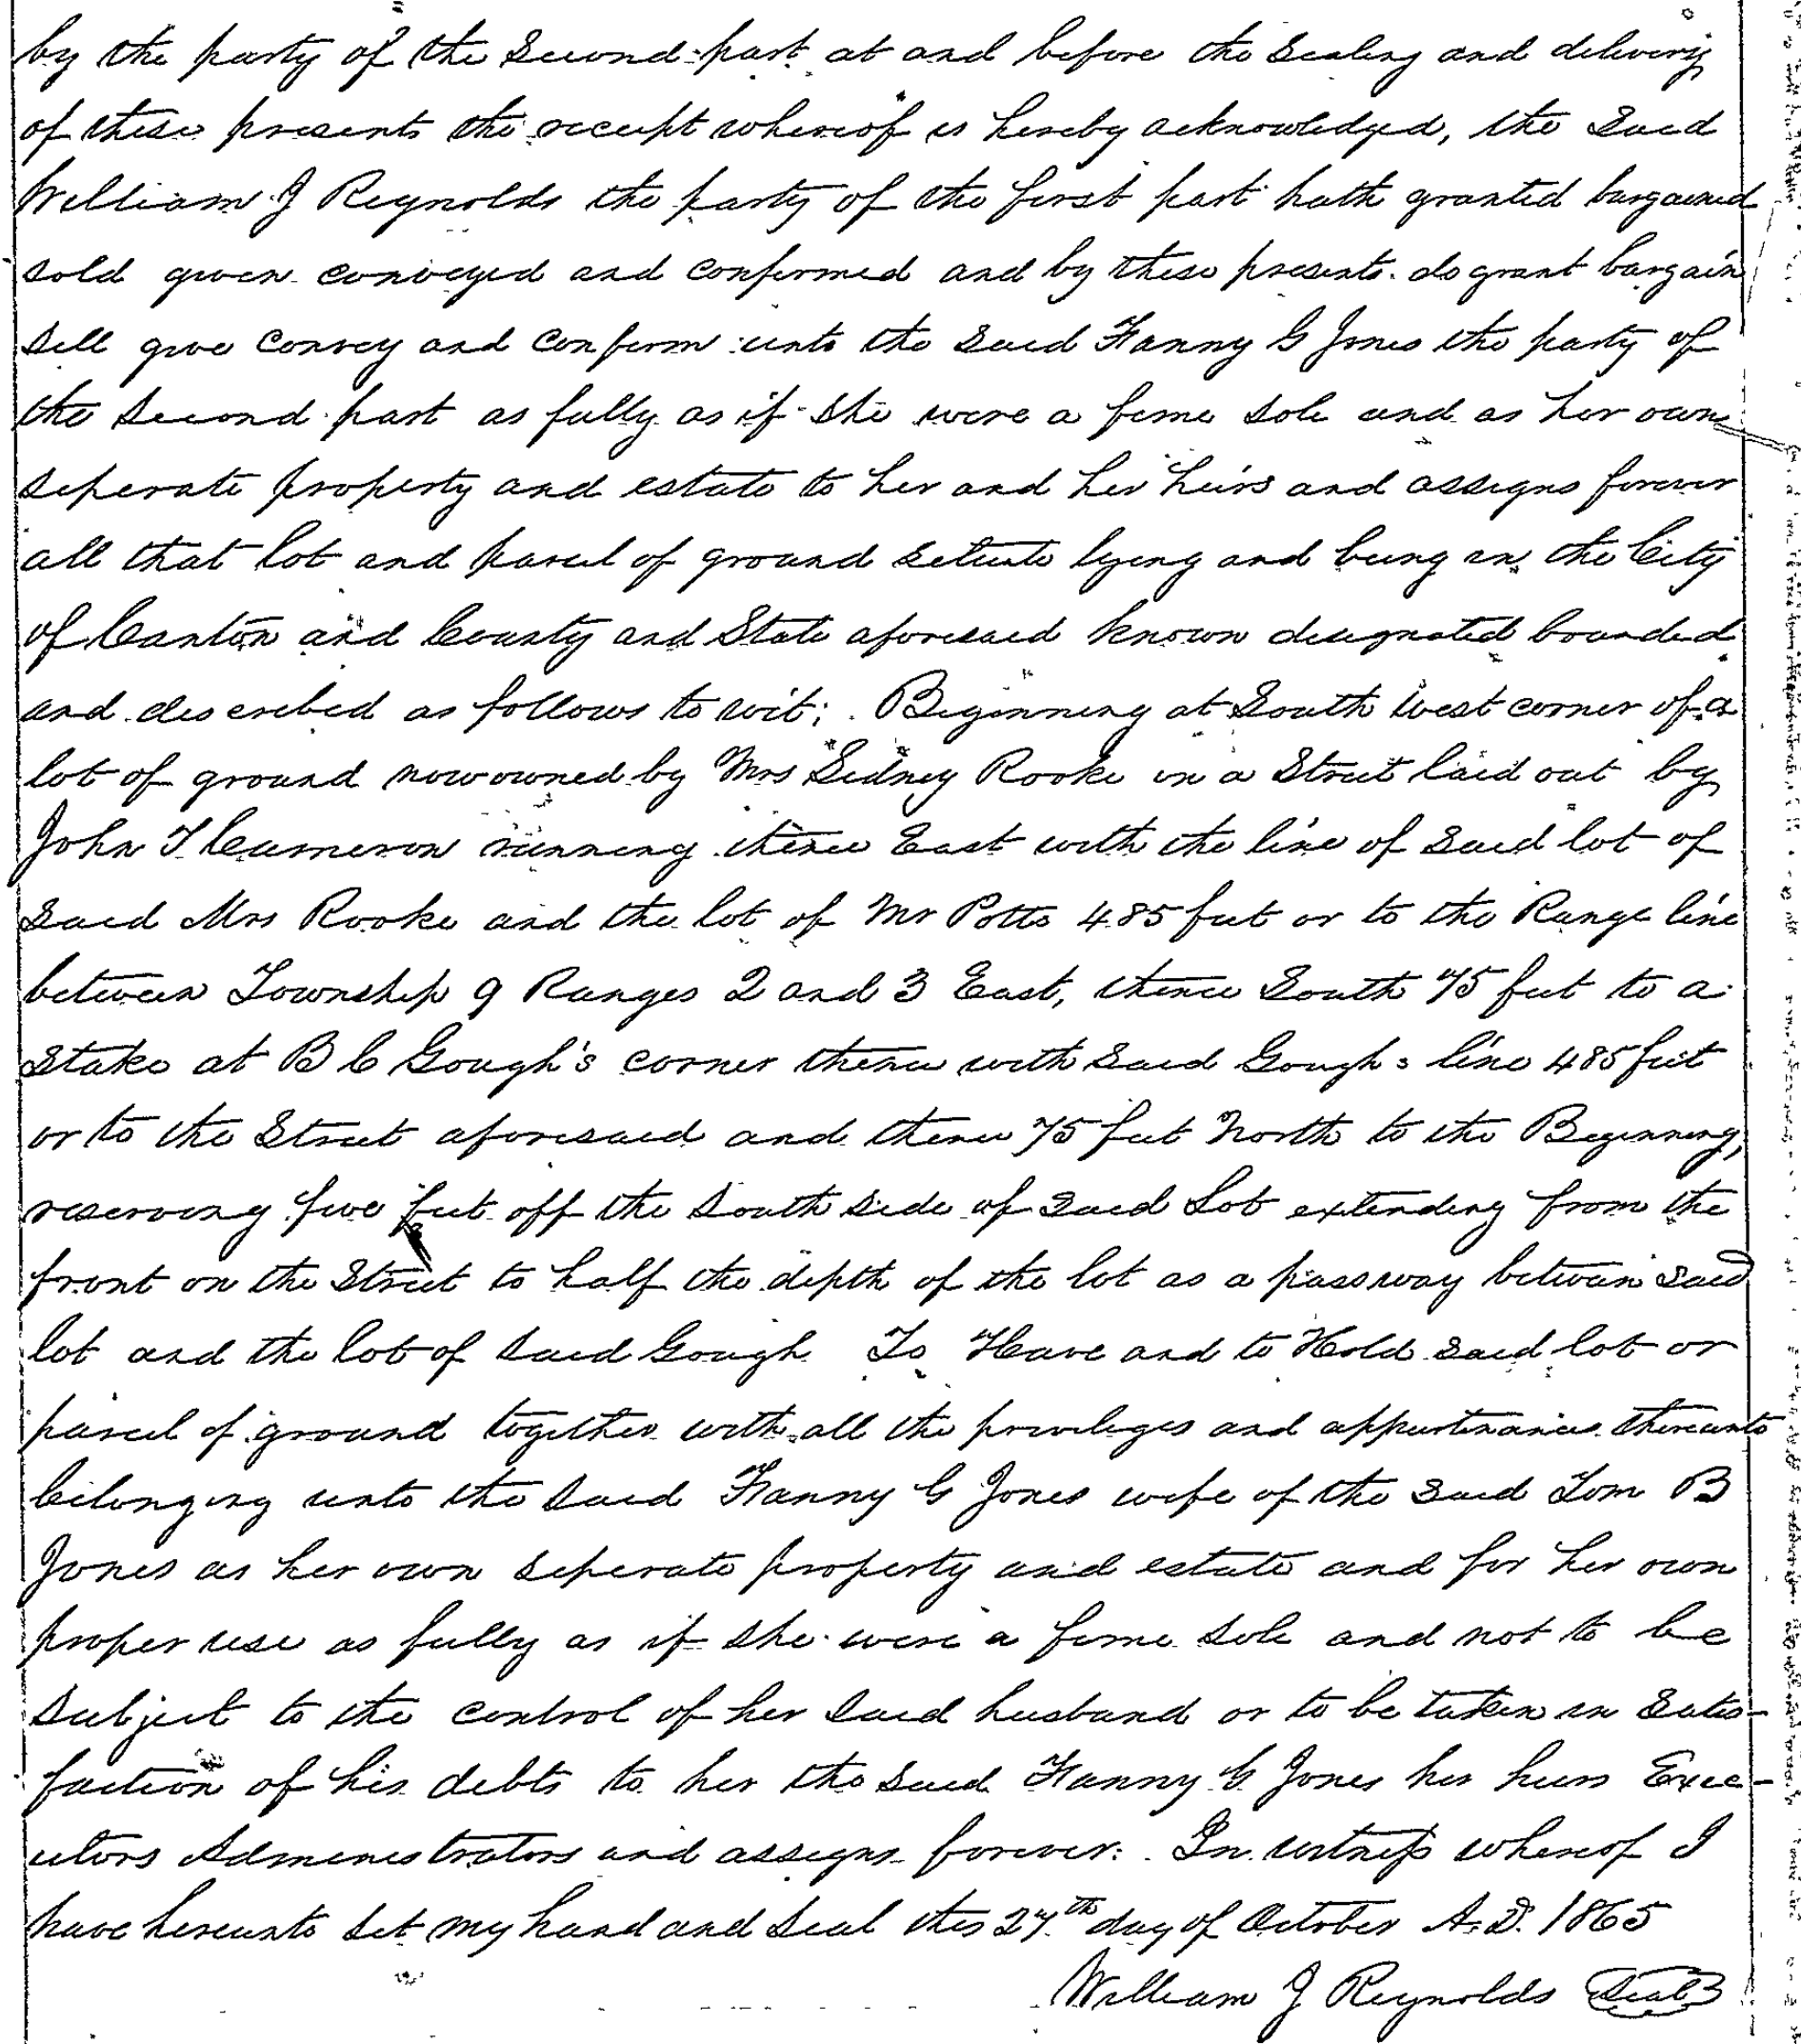 by the party of the Second part at and before the Sealing and delivery
of these presents the receipt whereof is hereby acknowledged, the Said
William J Reynolds the party of the first part hath granted bargained
sold given conveyed and confirmed and by these presents do grant bargain
sell give convey and confirm unto the said Fanny G Jones the party of
the second part as fully as if she were a feme sole and as her own
seperate property and estate to her and her heirs and assigns forever
all that lot and parcel of ground situate lying and being in the City
of Canton and County and State aforesaid known designated bounded
and described as follows to wit; Beginning at South West corner of a
lot of ground now owned by Mrs Sidney Rooke on a Street laid out by
John T Cameron running thence East with the line of said lot of
Said Mrs Rooke and the lot of Mr Potts 485 feet or to the Range line
between Township 9 Ranges 2 and 3 East, thence South 75 feet to a
Stake at B C Gough's corner thence with said Gough's line 485 feet
or to the Street aforesaid and thence 75 feet North to the Beginning,
reserving five feet off the South side of said Lot extending from the
front on the Street to half the depth of the lot as a passway between said
lot and the lot of said Gough To Have and to Hold said lot or
parcel of ground together with all the privileges and appurtenances thereunto
belonging unto the said Fanny G Jones wife of the said Tom B
Jones as her own seperate property and estate and for her own
proper use as fully as if she were a feme sole and not to be
subject to the control of her said husband or to be taken in Satis-
faction of his debts to her the said Fanny G Jones her heirs Exec-
utors Administrators and assigns forever. In witness whereof I
have hereunto set my hand and seal this 27th day of October A.D. 1865
William J Reynolds Seal